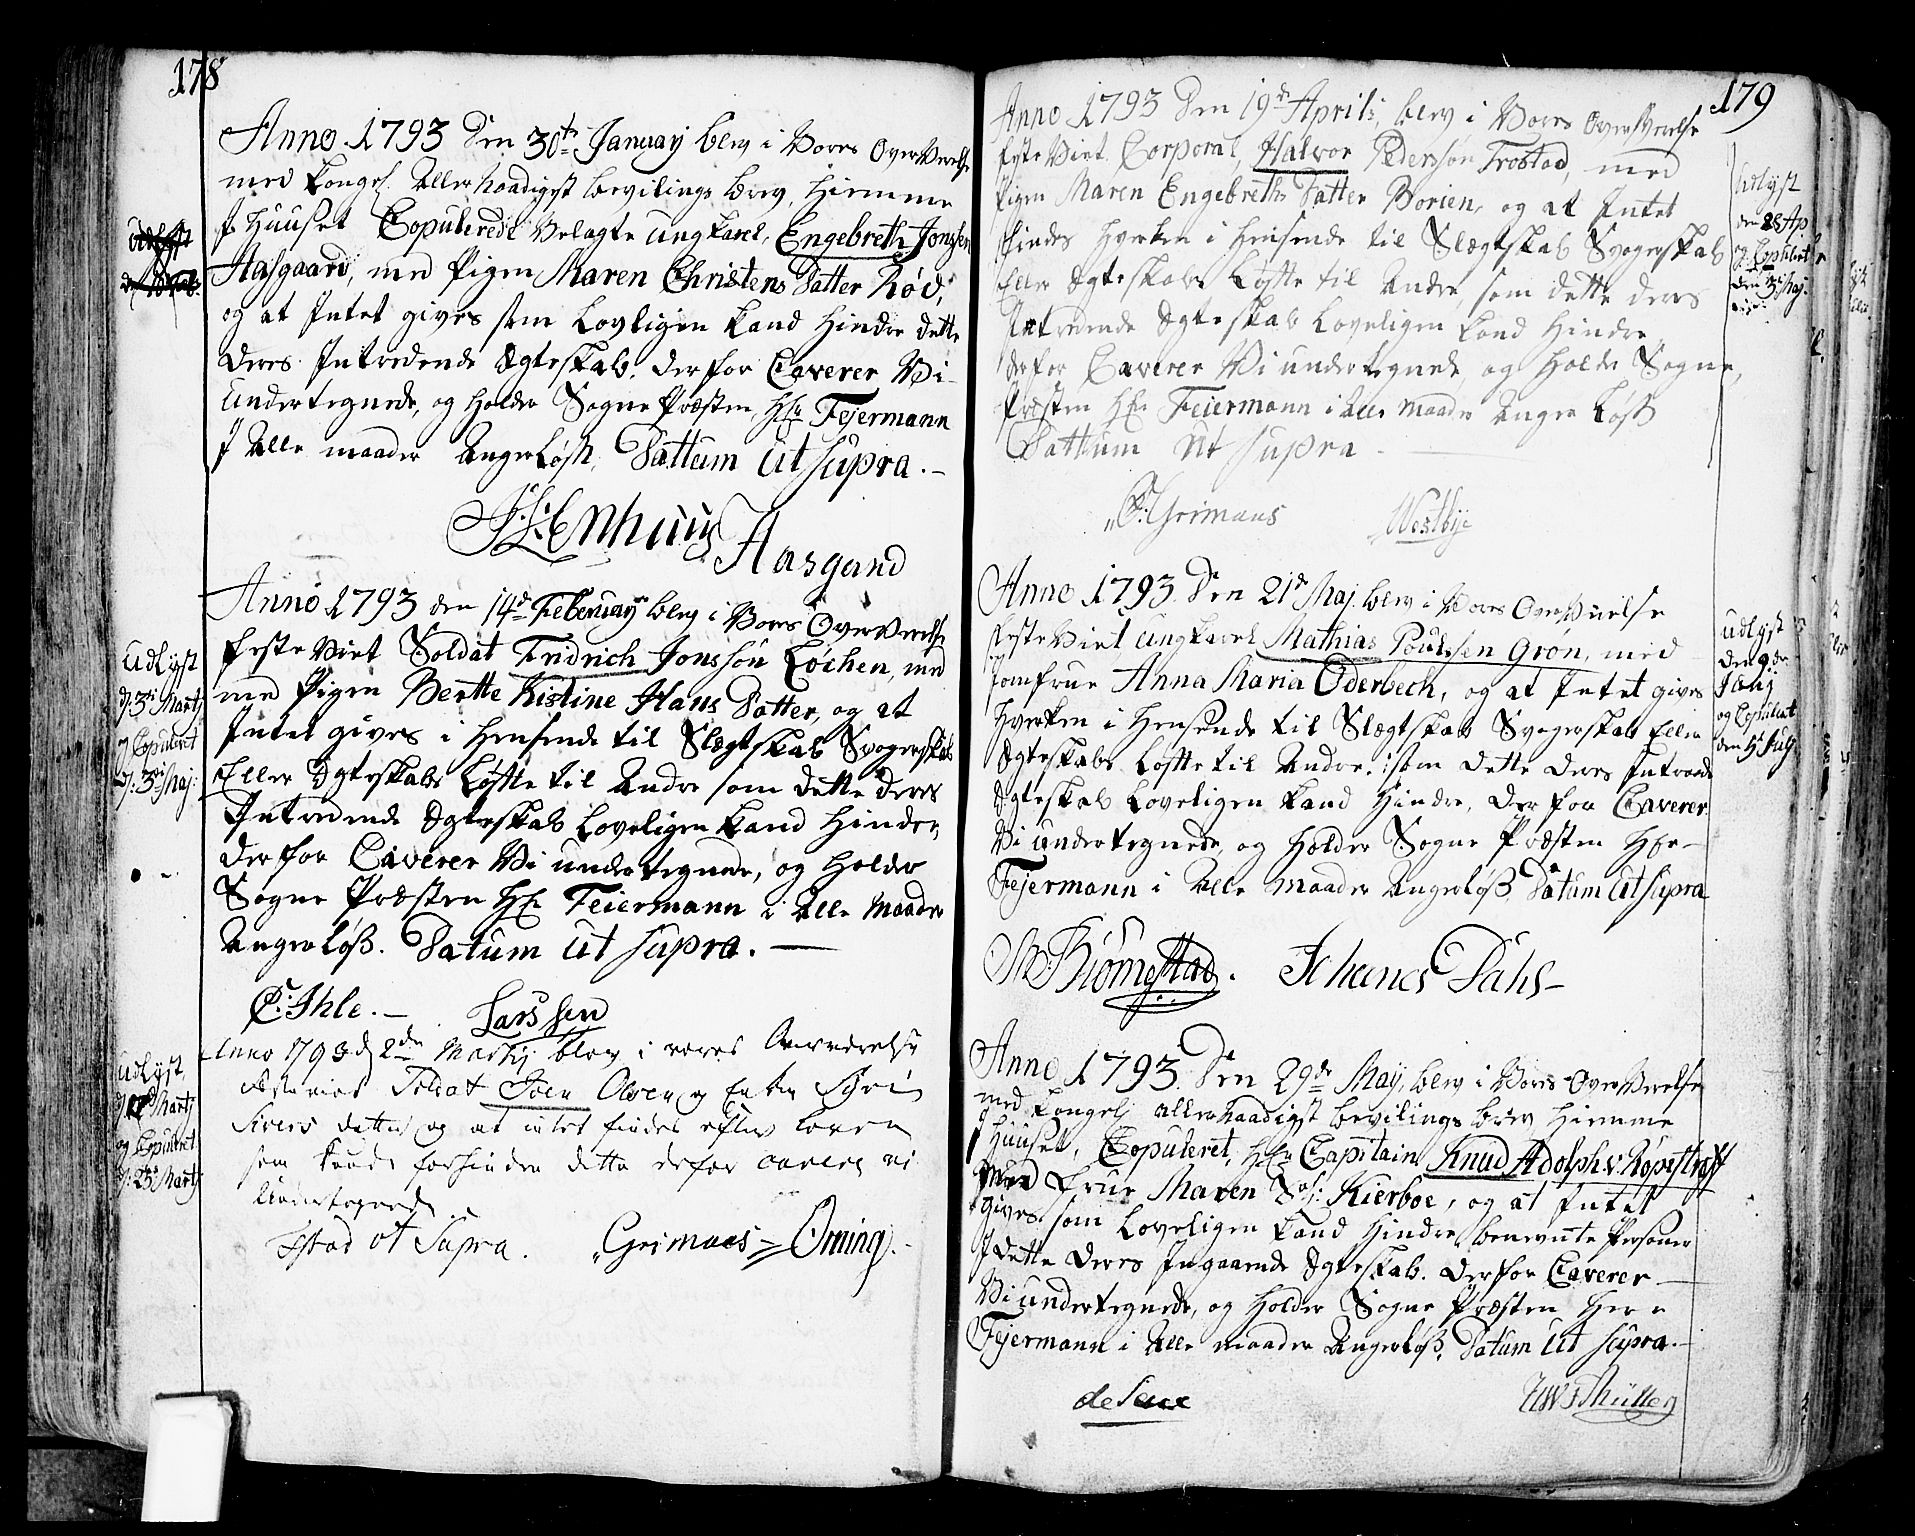 178
Anno 1793 den 30te January blev i Vores OverVerelse
med Kongel. Allernaadigst bevilings brev, Hiemme
J Huuset Copulerede Velagte ungkarl, Engebreth Jonssen
Aasgaard, med Pigen Maren Christens Datter Röd,
og at Intet gives som Lovligen kand Hindre dette
deres Intredende Egteskab. derfor Caverer Vi
undertegnede, og holder Sogne Præsten, Hr Fejermann
J Alle maader Angerløsh, Dattum Ut Supra.-
Aasgaard
Udlyst
Anno 1793 den 14d February blev i Vores OverVerelse
festeViet Soldat Fridrich Jonssön Löchen, med
med Pigen Berthe Kistine Hans Datter, og at
Intet gives i Hensende til Slægtskab Svogerskab
Eller Egteskabs Löfte til Andre som dette deres
Intredende Egteskab Loveligen kand Hinder,
derfor Caverer Vi undertegnede, og holder
Sogne Præsten Hr Feiermann i Alle Maader
Angerløss. Datum Ut Supra.
C. Ihle.- Larssen
Udlyst
d: 3di Martj
og Copuleret
d: 3di Maj:
Anno 1793 d 2de Martij blev i vores Overværelse
Festeviet Soldat Joen Olsen og Enken Siri
Sivers datter og at intet findes efter loven
som kand forhindre dette derfor cavere vi
Undertegnede
Ut Supra. Grimaes Öming.
Udlyst,
Martj
og Copuleret
d: 25 Martj
179
Anno 1793 Den 19de Aprili, blev i Vores OverVerelse
festeViet Corporal, Halvor Pederssön Trostad, med
Pigen Maren Engebreths Datter Borien, og at Intet
findes Hverken i Hensende til Slægtskab Svogerskab
Eller Egteskabs Löfte til Andre, som dette deres
Intredende Egteskab Loveligen kand Hindre,
derfor Caverer Vi undertegnede, og Holder Sogne,
Præsten Hr Feiermann i Alle Maader Anger Löss
Dattum Ut Supra
Grimaus Westbye
Udlyst
den 28 Ap
og Copuleret
den 3di Maj.
Anno 1793 Den 21de Maj. blev i Vores OverVerelse
festeViet ungkarl Mathias Poulssen Grön, med
Jomfrue Anna Maria Oderbech, og at Intet gives
Hverken i Hensende til Slægtskab Svogerskab Eller
Egteskabs Löfte til Andre. som dette deres Intræde
Egteskab Loveligen kand Hindre, derfor Caverer
Vi undertegnede, og holder Sogne Præsten Her
Fejermann i Alle Maader Angerlöss, Datum Ut Supra
Biörnestad. Johanes Dahl
Udlyst
den 9de
Junj
og Copuleret
den July
Anno 1793. Den 29de May, blev i Vores OverVerelse
med Kongelj allernaadigst bevilings brev Hiemme
J Huuset, Copuleret, Hr Capitain Knud Adolph v: Röpstorff
Med Frue Maren Soph: Kierboe, og at Intet
gives som Loveligen kand Hindre benevnte Personer
I dette deres Ingaaende Egteskab. derfor Caverer
Vi undertegnede, og holder Sogne Præsten Herr
Fejermann i Alle maader Angerlöss. Datum Ut Supra.-
de Seue Müller